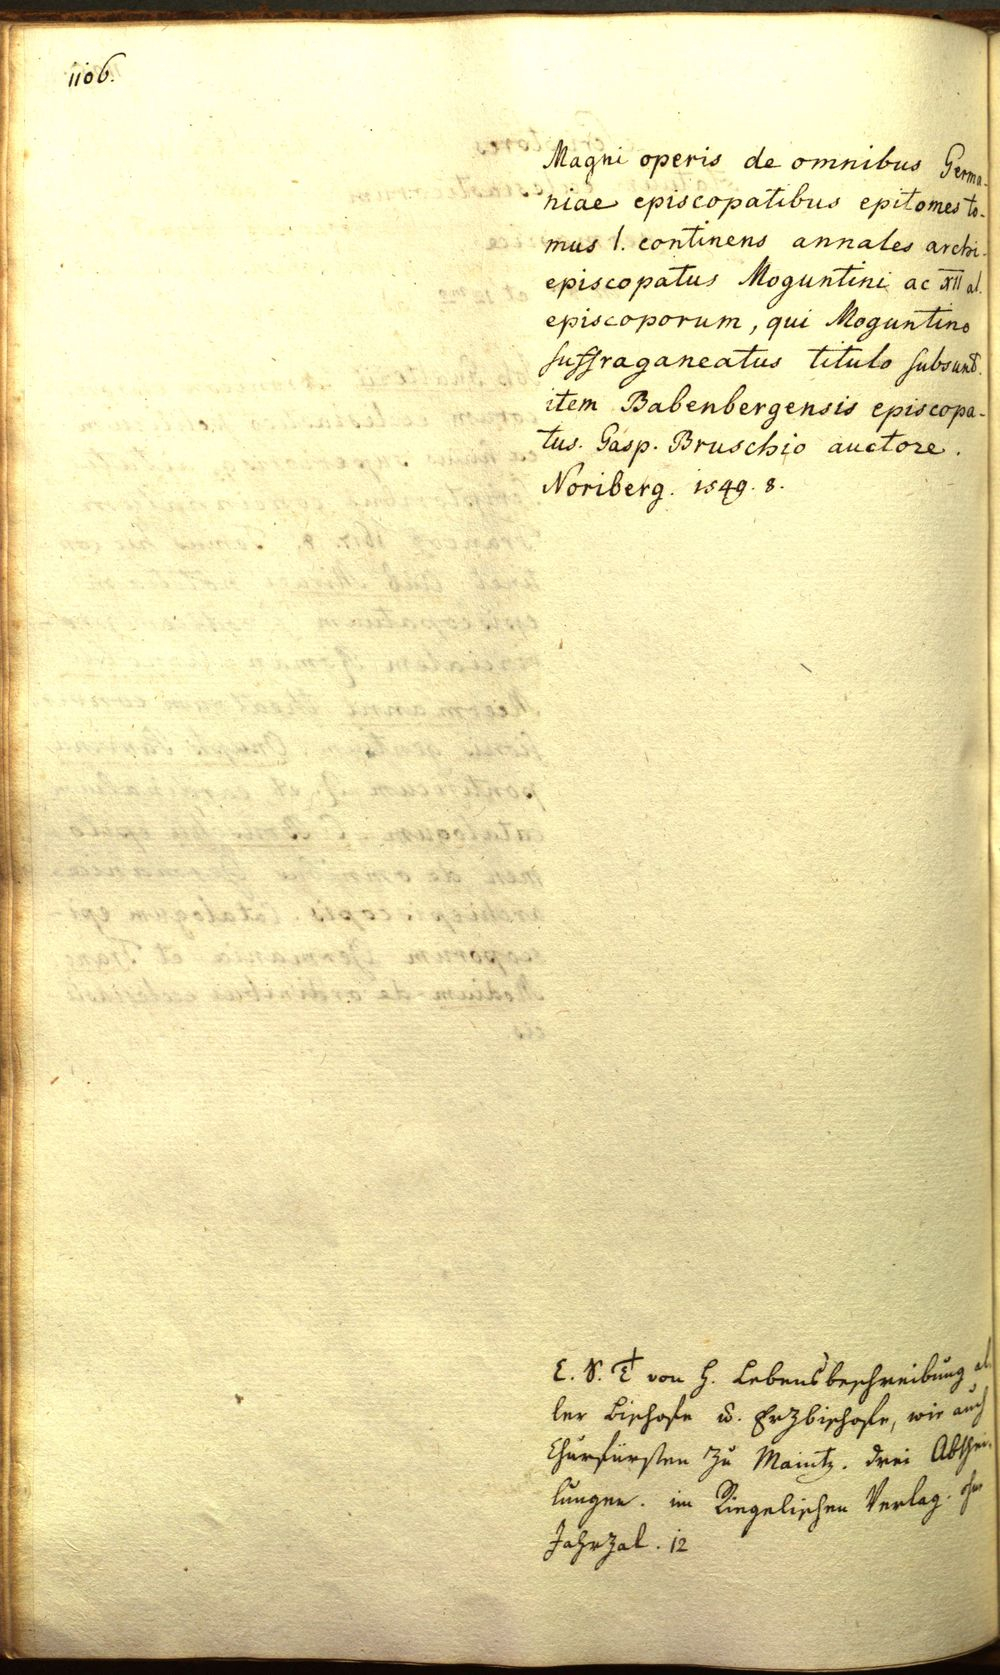 1106.
Magni operis de omnibus Germa-
niae episcopatibus epitomes to-
mus I. continens annales archi-
episcopatus Moguntini ac XII al.
episcoporum, qui Moguntino
suffraganeatus titulo subsunt.
item Babenbergensis episcopa-
tus. Gasp. Bruschio auctore.
Noriberg. 1549. 8.
E. S. von H. Lebensbeschreibung al-
ler Bischofe u. Erzbischofe, wie auch
Churfürsten zu Maintz. drei Abthei-
lungen. im Riegelischen Verlag. ohne
Jahrzal. 12